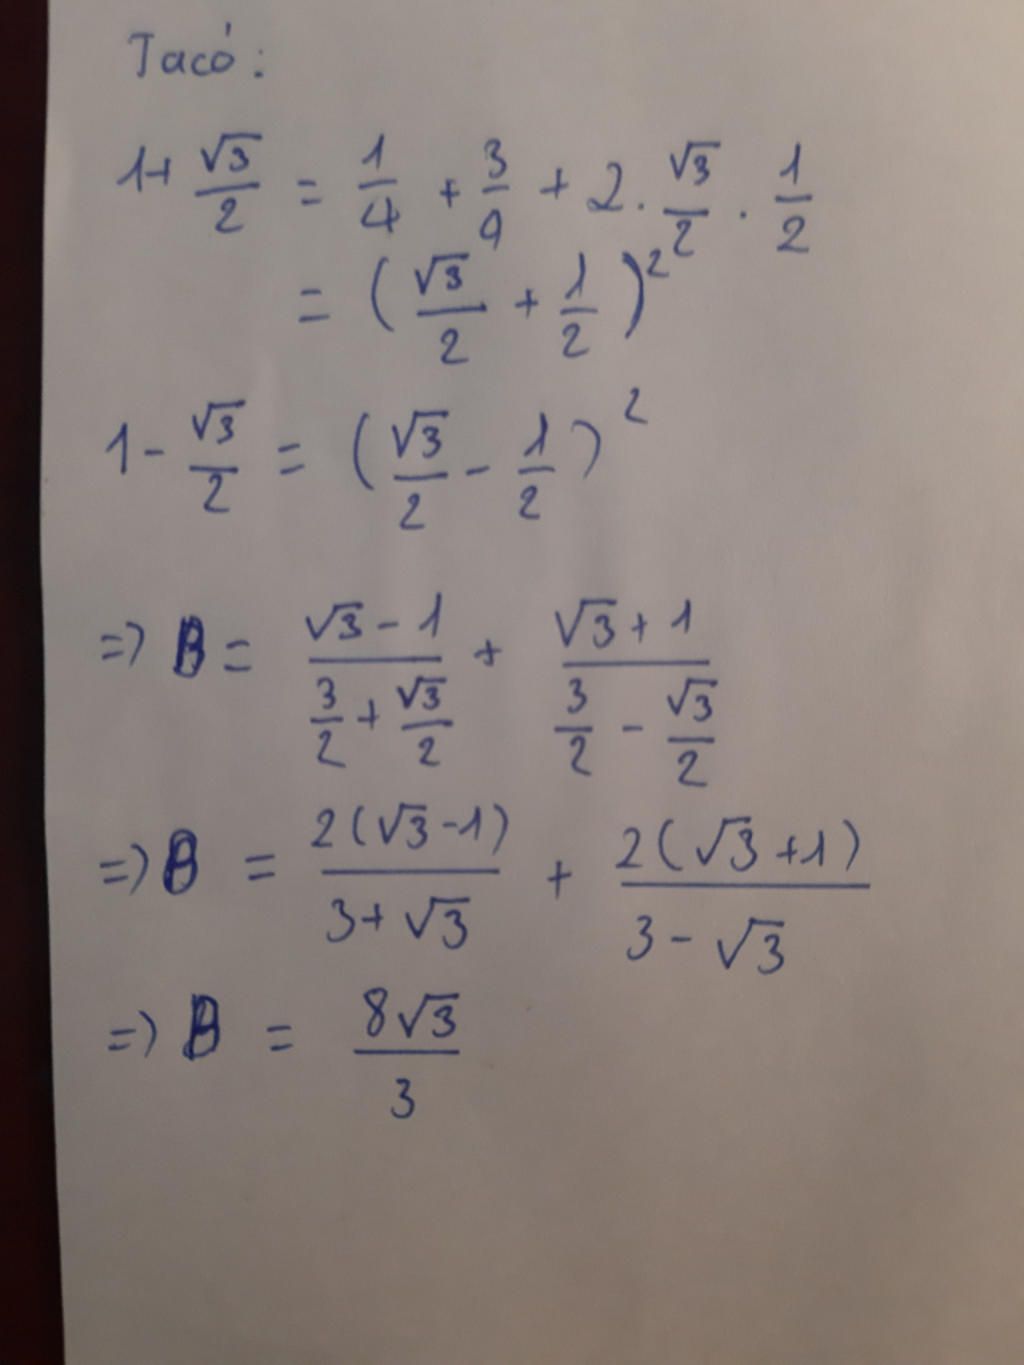 Ta có:
1 + √3/2 = 1/4 + 3/4 + 2 . √3/2 . 1/2
= (√3/2 + 1/2)²
1 - √3/2 = (√3/2 - 1/2)²
=> B = (√3 - 1)/(3/2 + √3/2) + (√3 + 1)/(3/2 - √3/2)
=> B = 2(√3 - 1)/(3 + √3) + 2(√3 + 1)/(3 - √3)
=> B = 8√3/3